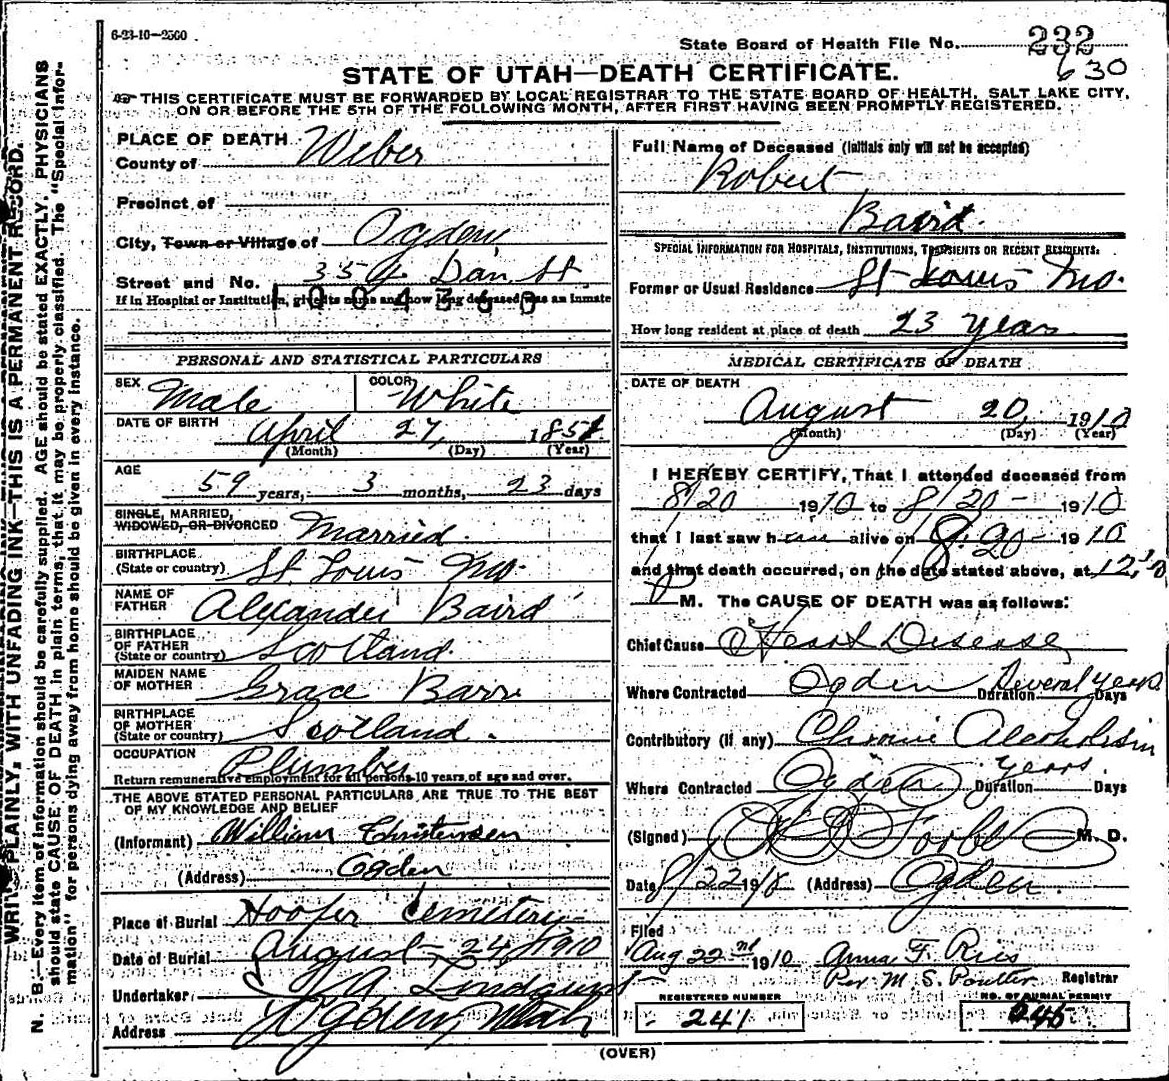 6-23-10—2500
State Board of Health File No. 232
630
STATE OF UTAH—DEATH CERTIFICATE.
THIS CERTIFICATE MUST BE FORWARDED BY LOCAL REGISTRAR TO THE STATE BOARD OF HEALTH, SALT LAKE CITY,
ON OR BEFORE THE 5TH OF THE FOLLOWING MONTH, AFTER FIRST HAVING BEEN PROMPTLY REGISTERED.
WRITE PLAINLY, WITH UNFADING INK—THIS IS A PERMANENT RECORD.
N. B.—Every item of information should be carefully supplied. AGE should be stated EXACTLY. PHYSICIANS
should state CAUSE OF DEATH in plain terms, that it may be properly classified. The "Special Infor-
mation" for persons dying away from home should be given in every instance.
PLACE OF DEATH
County of Weber
Precinct of
City, Town or Village of Ogden
Street and No. 354 Dan St
If in Hospital or Institution, give its name and how long deceased was an inmate
1004360
PERSONAL AND STATISTICAL PARTICULARS
SEX Male COLOR White
DATE OF BIRTH April 27, 1851
(Month) (Day) (Year)
AGE 59 years, 3 months, 23 days
SINGLE, MARRIED,
WIDOWED, OR DIVORCED Married.
BIRTHPLACE
(State or country) St. Louis Mo.
NAME OF
FATHER Alexander Baird
BIRTHPLACE
OF FATHER
(State or country) Scotland.
MAIDEN NAME
OF MOTHER Grace Barr
BIRTHPLACE
OF MOTHER
(State or country) Scotland.
OCCUPATION Plumber
Return remunerative employment for all persons 10 years of age and over.
THE ABOVE STATED PERSONAL PARTICULARS ARE TRUE TO THE BEST
OF MY KNOWLEDGE AND BELIEF
(Informant) William Christensen
(Address) Ogden
Place of Burial Hooper Cemetery
Date of Burial August 24, 1910
Undertaker J A Lindquist
Address Ogden, Utah
Full Name of Deceased (Initials only will not be accepted)
Robert
Baird.
SPECIAL INFORMATION FOR HOSPITALS, INSTITUTIONS, TRANSIENTS OR RECENT RESIDENTS:
Former or Usual Residence St Louis Mo.
How long resident at place of death 23 Years
MEDICAL CERTIFICATE OF DEATH
DATE OF DEATH
August 20, 1910
(Month) (Day) (Year)
I HEREBY CERTIFY, That I attended deceased from
8/20 1910 to 8/20 - 1910
that I last saw him alive on 8-20- 1910
and that death occurred, on the date stated above, at 12,30
P M. The CAUSE OF DEATH was as follows:
Chief Cause Heart Disease
Where Contracted Ogden Duration Several years Days
Contributory (if any) Chronic Alcoholism
Where Contracted Ogden Duration years Days
(Signed) M. D.
Date 8/22 1910 (Address) Ogden.
Filed
Aug 22nd 1910 Anna F. Ries
Per M. S. Poulter Registrar
REGISTERED NUMBER NO. OF BURIAL PERMIT
241 245
(OVER)